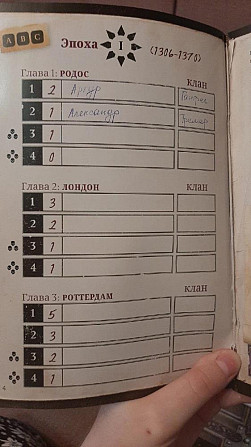 A B C
Эпоха I (1306-1370)
Глава 1: РОДОС клан
1 2 Артур
2 1 Александр
3 1
4 0
Глава 2: ЛОНДОН клан
1 3
2 2
3 1
4 1
Глава 3: РОТТЕРДАМ клан
1 5
2 3
3 2
4 1
4